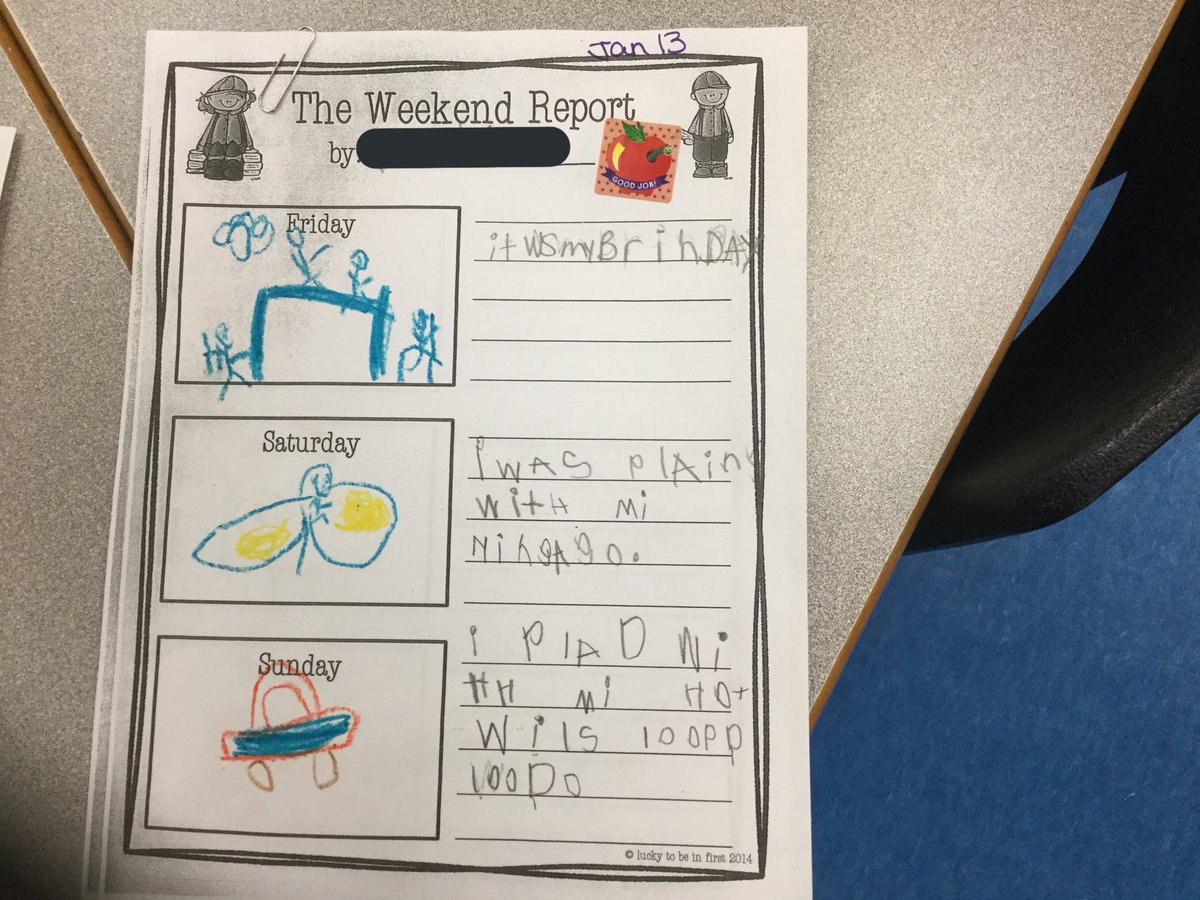 Jan 13
The Weekend Report
by:
GOOD JOB!
Friday
it WS my BrihDAY
Saturday
I WAS PlAiny
WitH Mi
NiNgAgo.
Sunday
I PlAD Wi
tH Mi HOt
WilS loopp
looDo
© lucky to be in first 2014